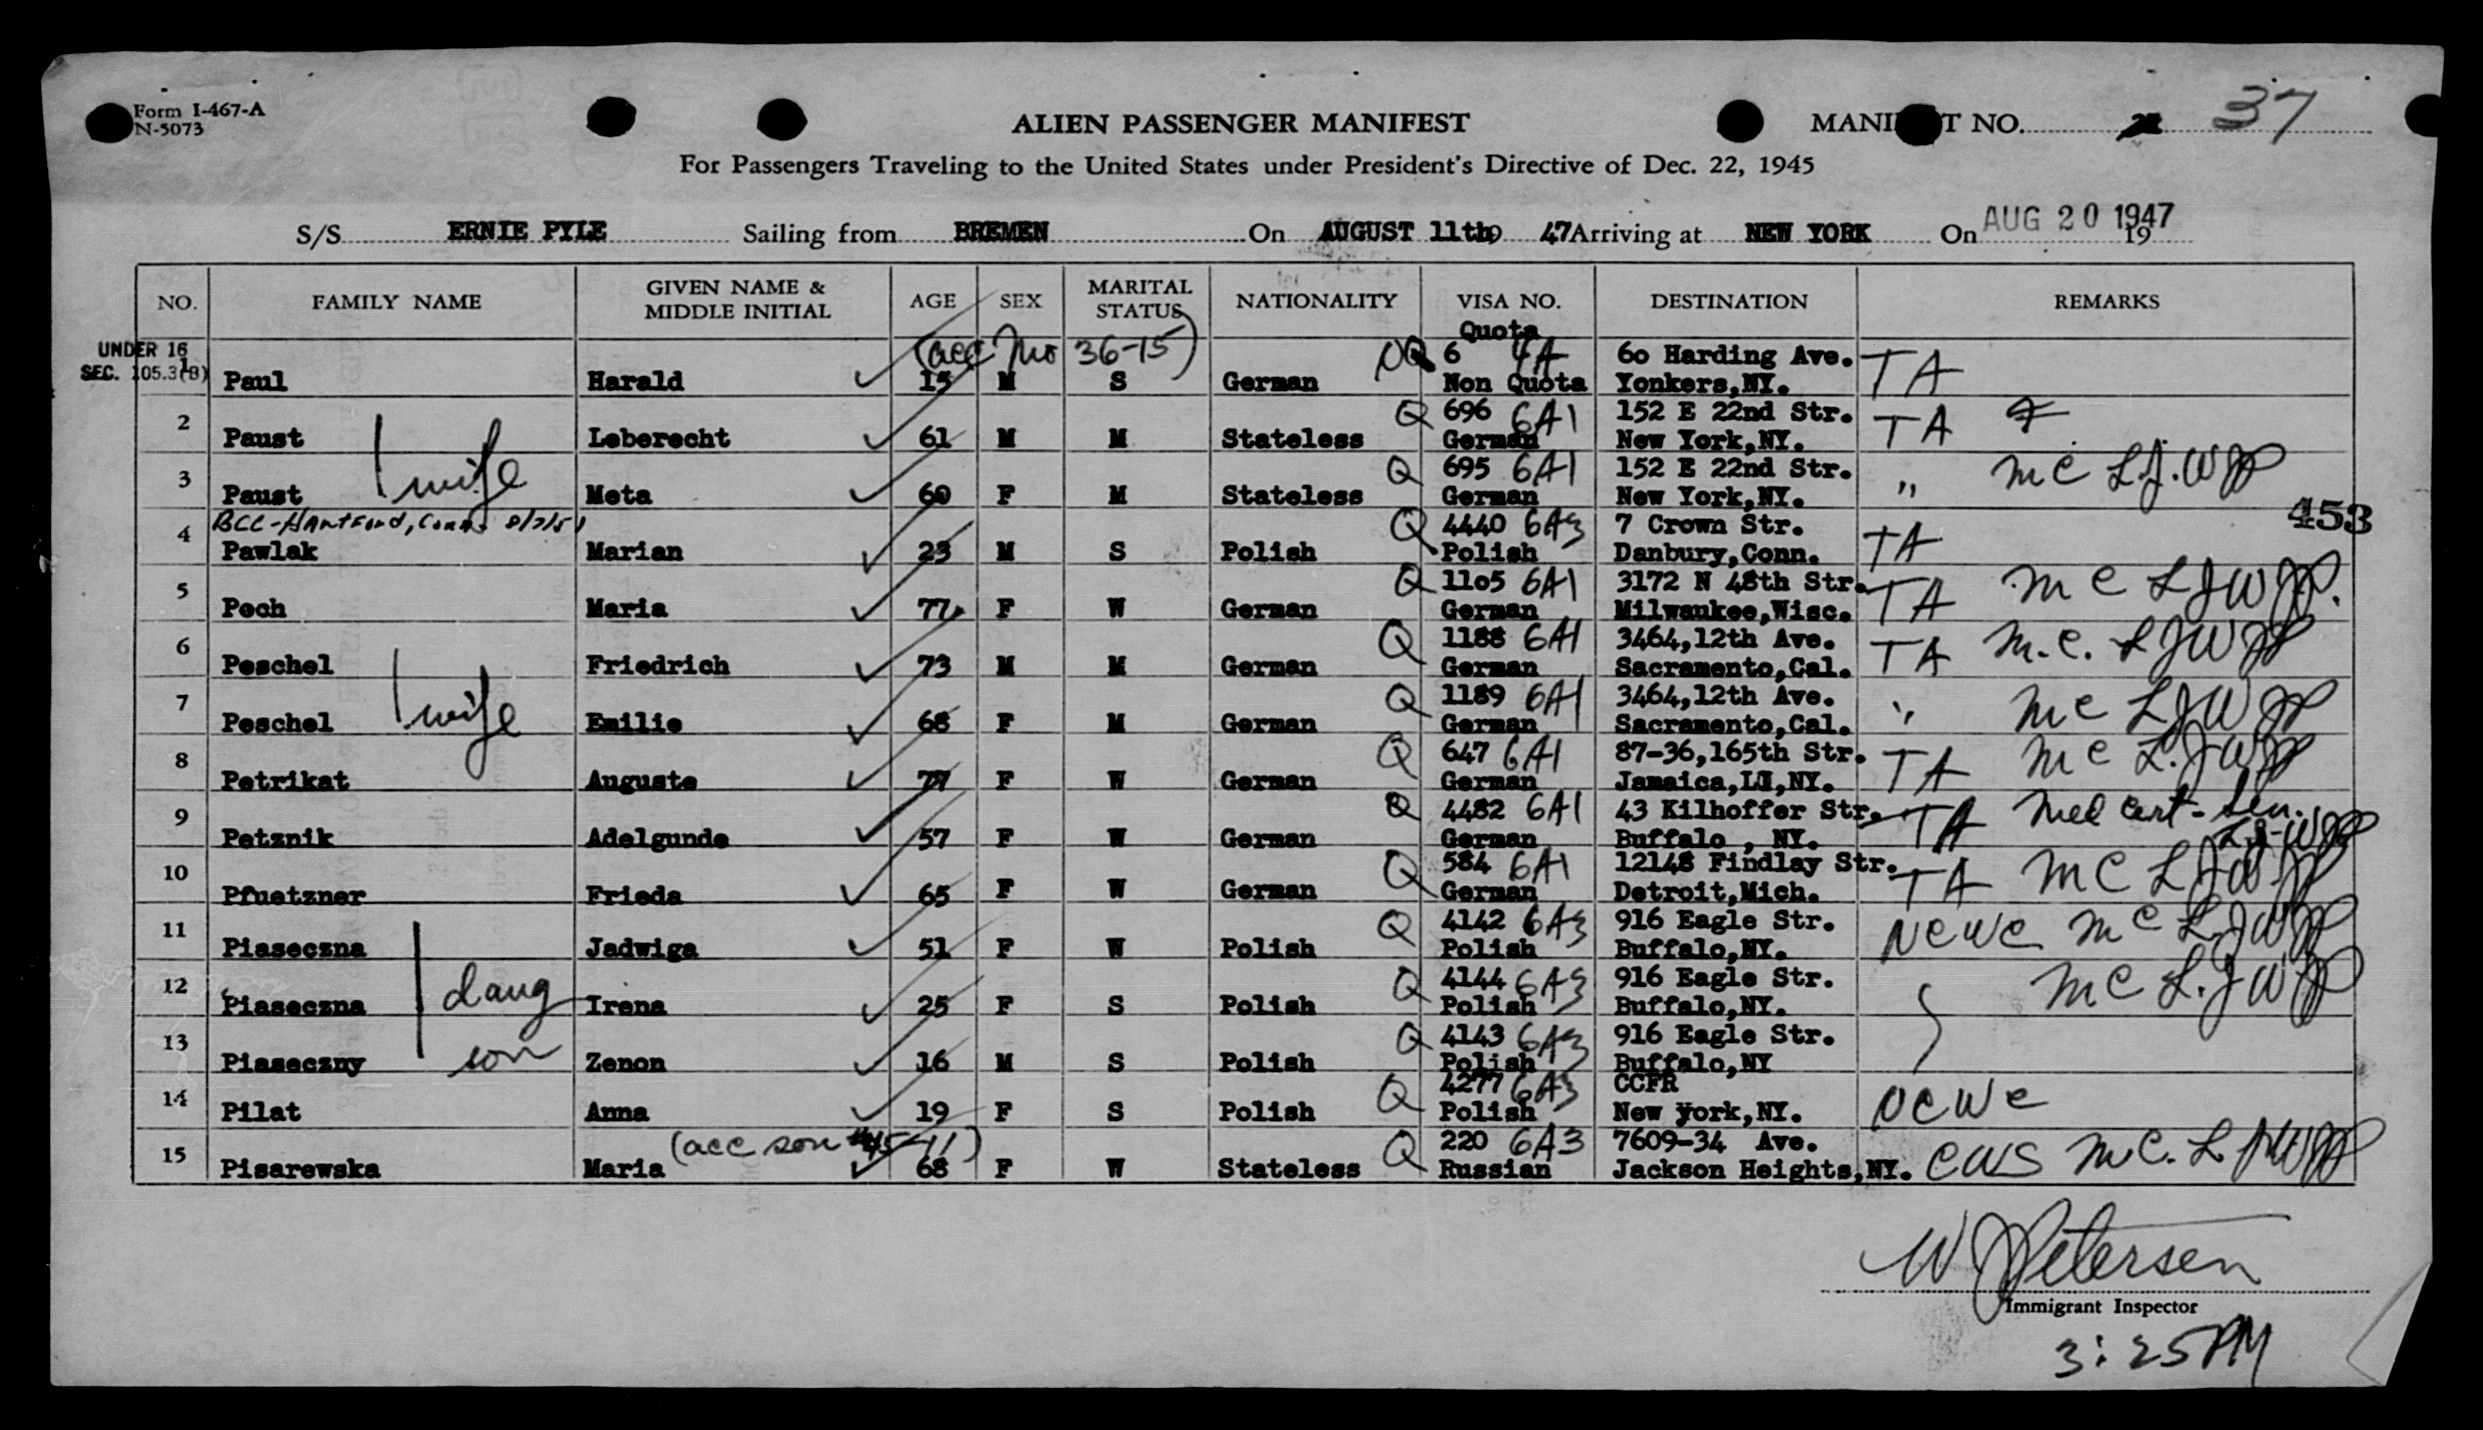 Form I-467-A
N-5073
ALIEN PASSENGER MANIFEST
MANI T NO. 37
For Passengers Traveling to the United States under President's Directive of Dec. 22, 1945
S/S ERNIE PYLE Sailing from BREMEN On AUGUST 11th 19 47 Arriving at NEW YORK On AUG 20 1947 19
NO. FAMILY NAME GIVEN NAME & MIDDLE INITIAL AGE SEX MARITAL STATUS NATIONALITY VISA NO. DESTINATION REMARKS
Quota
UNDER 16 (acc Mo 36-15) NQ 6 4A 60 Harding Ave. TA
SEC. 105.3(B) 1 Paul Harald 15 M S German Non Quota Yonkers,NY.
2 Q 696 6A1 152 E 22nd Str. TA
Paust Leberecht 61 M M Stateless German New York,NY.
3 wife Q 695 6A1 152 E 22nd Str. " MC L.J.WJP
Paust Meta 60 F M Stateless German New York,NY.
453
BCC-Hartford, Conn. 8/7/51
4 Q 4440 6A3 7 Crown Str. TA
Pawlak Marian 23 M S Polish Polish Danbury,Conn.
5 Q 1105 6A1 3172 N 48th Str. TA MC LJWJP.
Pech Maria 77 F W German German Milwaukee,Wisc.
6 Q 1188 6A1 3464,12th Ave. TA M.C. LJWJP
Peschel Friedrich 73 M M German German Sacramento,Cal.
7 wife Q 1189 6A1 3464,12th Ave. " MC LJWJP
Peschel Emilie 68 F M German German Sacramento,Cal.
8 Q 647 6A1 87-36,165th Str. TA MC L.JWJP
Petrikat Auguste 77 F W German German Jamaica,LI,NY.
9 Q 4482 6A1 43 Kilhoffer Str. TA Med Cert - Sen.
Petznik Adelgunde 57 F W German German Buffalo , NY. LJ-WJP
10 Q 584 6A1 12148 Findlay Str. TA MC LJWJP
Pfuetzner Frieda 65 F W German German Detroit,Mich.
11 Q 4142 6A3 916 Eagle Str. NCWC MC L.JWJP
Piaseczna Jadwiga 51 F W Polish Polish Buffalo,NY.
12 daug Q 4144 6A3 916 Eagle Str. MC L.JWJP
Piaseczna Irena 25 F S Polish Polish Buffalo,NY.
13 son Q 4143 6A3 916 Eagle Str.
Piaseczny Zenon 16 M S Polish Polish Buffalo,NY
14 Q 4277 6A3 CCFR NCWC
Pilat Anna 19 F S Polish Polish New york,NY.
15 (acc son #45-11) Q 220 6A3 7609-34 Ave. CWS MC. L JWJP
Pisarewska Maria 68 F W Stateless Russian Jackson Heights,NY.
W J Petersen
Immigrant Inspector
3:25PM